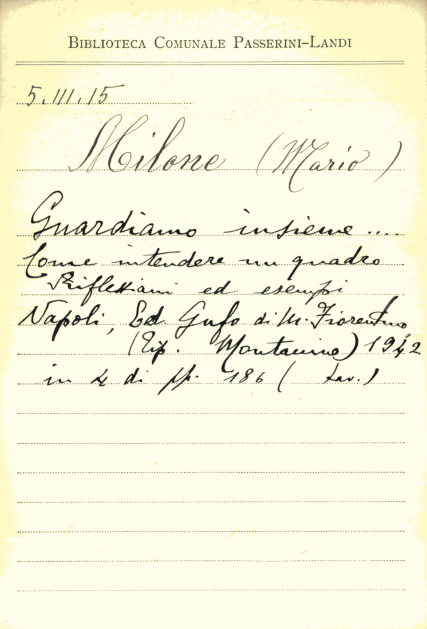 BIBLIOTECA COMUNALE PASSERINI-LANDI
5.III.15
Milone (Mario)
Guardiamo insieme....
Come intendere un quadro
Riflessioni ed esempi
Napoli, Ed. Gufo di M. Fiorentino
(Tip. Montanino) 1942
in 4 di pp. 186 ( tav.)